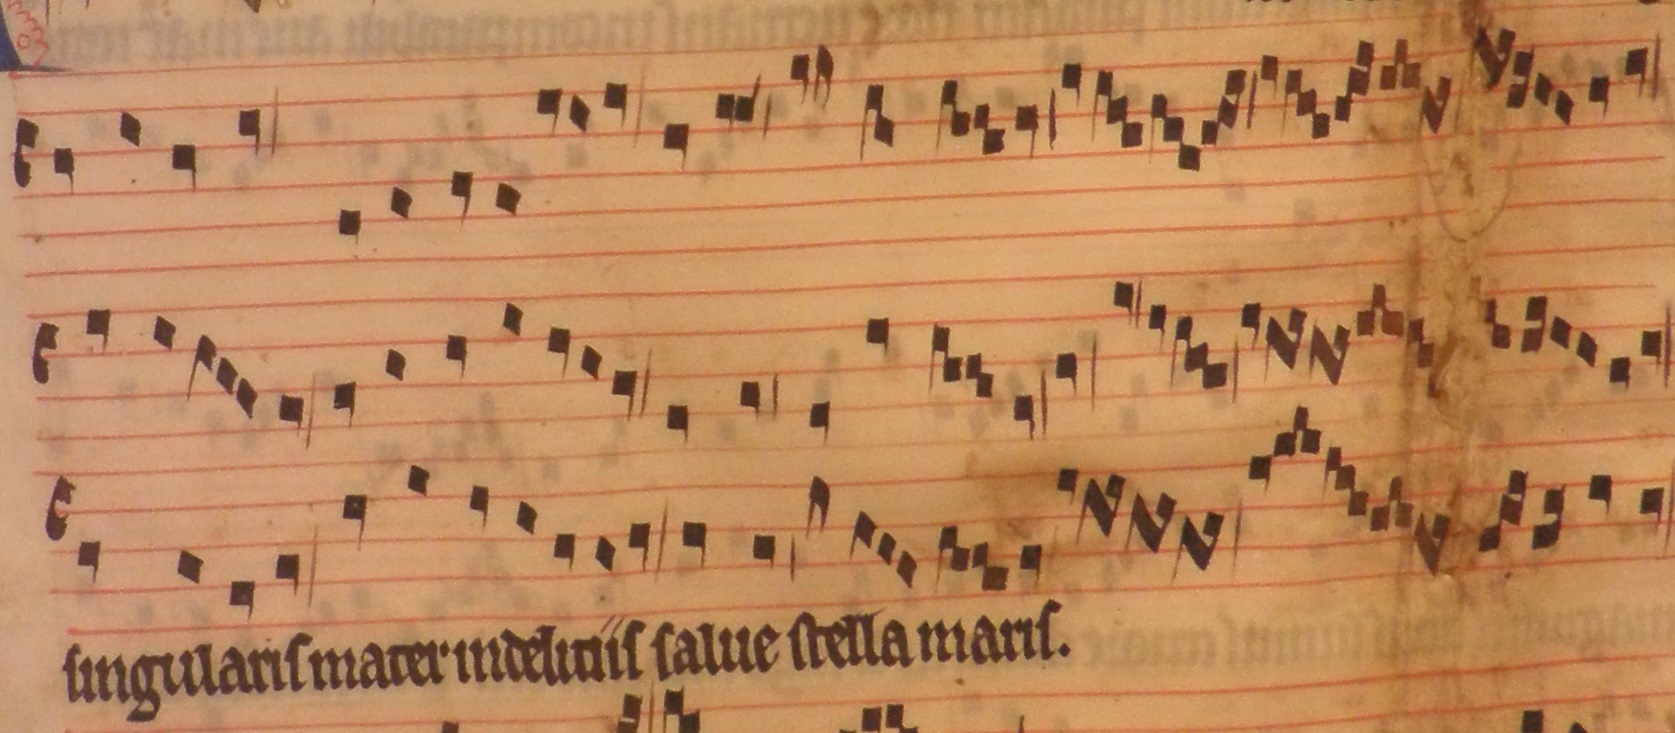 singularis mater indeliciis salue stella maris.